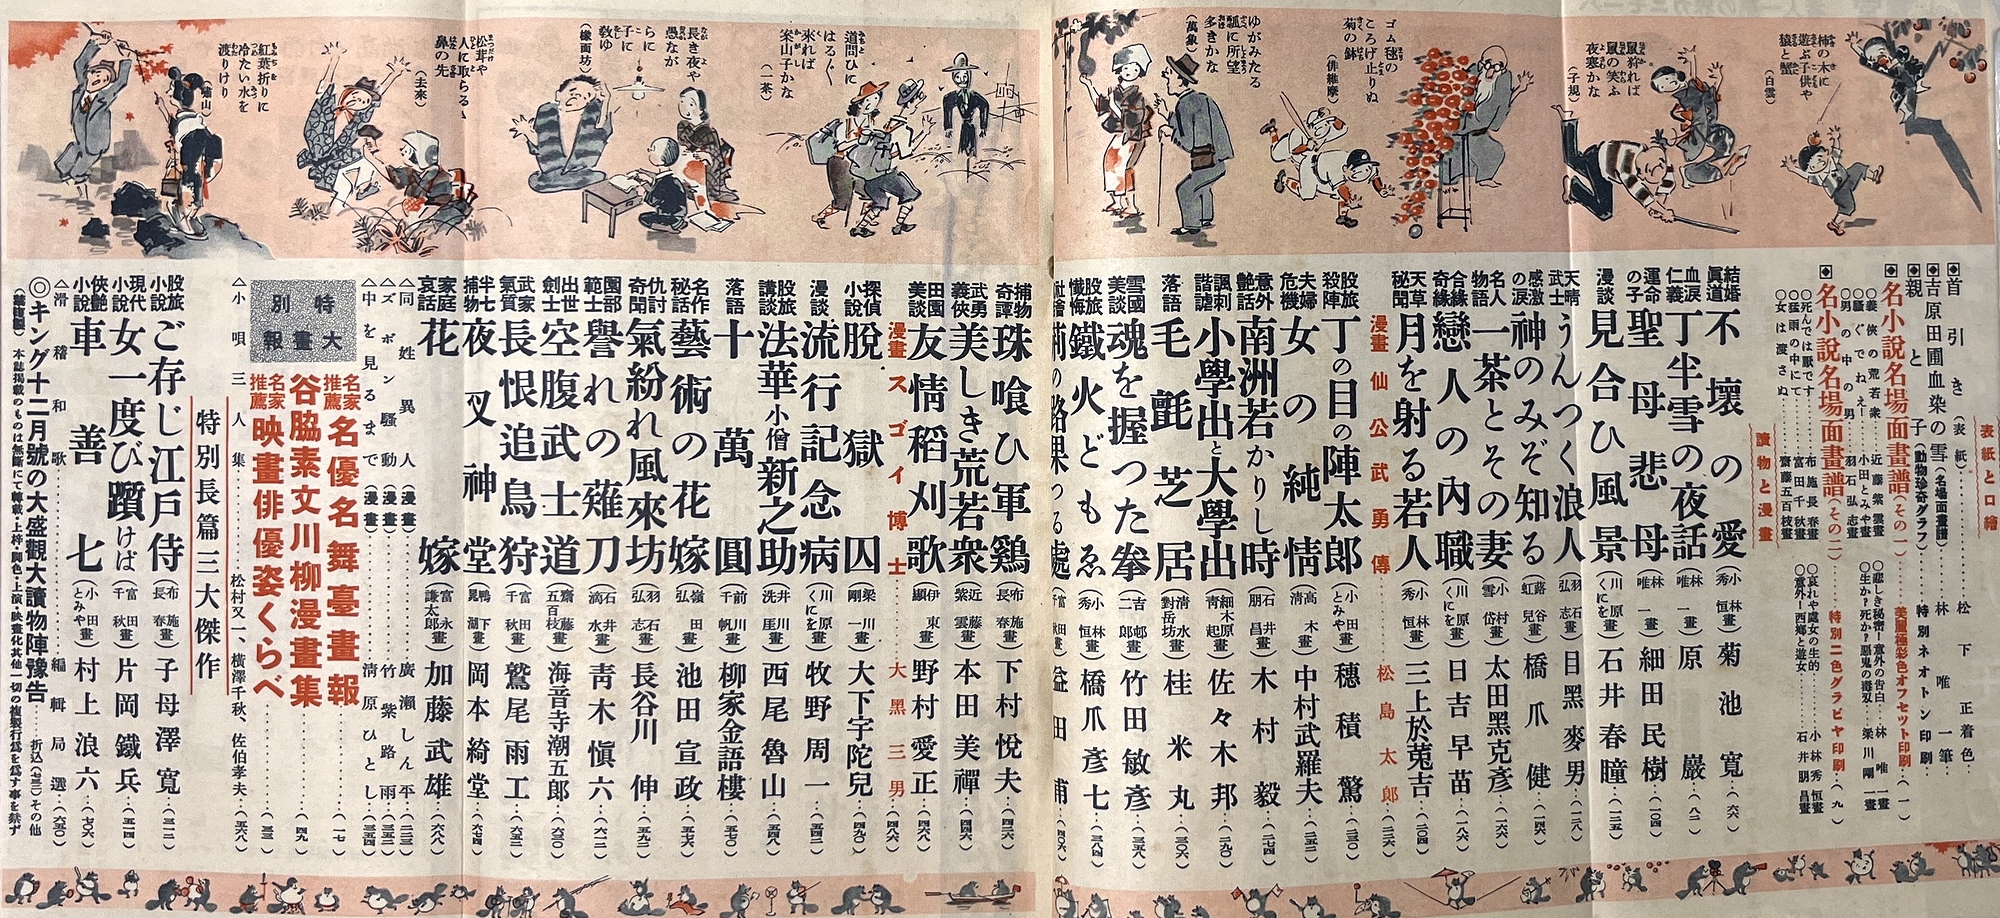 柿の木に
遊ぶ子供や
猿と蟹
(白雲)
鼠狩れば
鼠の笑ふ
夜寒かな
(子規)
ゴム毬の
ころげ止りぬ
菊の鉢
(俳維摩)
ゆがみたる
瓢に所望
多きかな
(萬象)
道問ひに
はる〲
来れば
案山子かな
(一茶)
長き夜や
愚ながらに
子に
敎ゆ
(橡面坊)
松茸や
人に取らるゝ
鼻の先
(去来)
紅葉折りに
冷たい水を
渡りけり
表紙と口繪
首引き(表紙)……松下正着色
吉原田圃血染の雪(名場面畫譜)……林唯一筆
親と子(動物珍奇グラフ)……特別ネオトン印刷
名小說名場面畫譜(その一)……美麗極彩色オフセツト印刷(一)
○義俠の荒若衆……近藤紫雲畫
○騷ぐでねえ……小田とみや畫
○男の中の男……羽石弘志畫
○悲しき秘密―意外の告白……林唯一畫
○生か?死か?惡鬼の毒双……梁川剛一畫
名小說名場面畫譜(その二)……特別二色グラビヤ印刷(九)
○死んでは厭です……布施長春畫
○猛雨の中にて……富田千秋畫
○女は渡さぬ……齋藤五百枝畫
○哀れや處女の生的……小林秀恒畫
○意外―西鄉と遊女……石井朋昌畫
讀物と漫畫
結婚眞道 不壞の愛(小林秀恒畫)菊池寬…(六六)
血淚仁義 丁半雪の夜話(林唯一畫)原巖…(八二)
運命の子 聖母悲母(林唯一畫)細田民樹…(一〇四)
漫談 見合ひ風景(川原くにを畫)石井春瞳…(一二五)
天晴武士 うんつく浪人(羽石弘志畫)目黑麥男…(一二八)
感激の淚 神のみぞ知る(蕗谷虹兒畫)橋爪健…(一四六)
名人物語 一茶とその妻(小村雪岱畫)太田黑克彥…(一六六)
合緣奇緣 戀人の內職(川原くにを畫)日吉早苗…(一八六)
天草秘聞 月を射る若人(小林秀恒畫)三上於菟吉…(二〇四)
漫畫 仙公武勇傳……松島太郞…(二二六)
股旅殺陣 丁の目の陣太郎(小田とみや畫)穗積驚…(二三〇)
夫婦危機 女の純情(高木清畫)中村武羅夫…(二五二)
意外艶話 南洲若かりし時(石井朋昌畫)木村毅…(二七四)
諷刺諧謔 小學出と大學出(細木原靑起畫)佐々木邦…(二九〇)
落語 毛氈芝居(淸水對岳坊畫)桂米丸…(三〇六)
雪國美談 魂を握つた拳(吉邨二郞畫)竹田敏彥…(三五八)
股旅懺悔 鐵火どもゑ(小林秀恒畫)橋爪彥七…(三八四)
捕物奇譚 珠喰ひ軍鷄(布施長春畫)下村悅夫…(四二六)
武勇義俠 美しき荒若衆(近藤紫雲畫)本田美禪…(四四六)
田園美談 友情稻刈歌(伊東顯畫)野村愛正…(四六八)
漫畫 スゴイ博士……大黑三男…(四八六)
探偵小說 脫獄囚(梁川剛一畫)大下宇陀兒…(四九〇)
漫談 流行記念病(川原くにを畫)牧野周一…(五四二)
股旅講談 法華小僧新之助(井洗崖畫)西尾魯山…(五四八)
落語 十萬圓(前川千帆畫)柳家金語樓…(五七〇)
名作秘話 藝術の花嫁(嶺田弘畫)池田宣政…(五七六)
仇討奇聞 氣紛れ風來坊(羽石弘志畫)長谷川伸…(五九二)
園部範士 譽れの薙刀(石井滴水畫)靑木愼六…(六一二)
出世劍士 空腹武士道(齋藤五百枝畫)海音寺潮五郎…(六三〇)
武家氣質 長恨追鳥狩(富田千秋畫)鷲尾雨工…(六五二)
半七捕物 夜叉神堂(鴨下晁湖畫)岡本綺堂…(六七四)
家庭哀話 花嫁(富永謙太郎畫)加藤武雄…(六八八)
△同姓異人(漫畫)……廣瀨しん平…(二三三)
△ズボン騷動(漫畫)……竹紫路雨…(三五二)
△中を見るまで(漫畫)……淸原ひとし…(三五四)
特別大畫報
名家推薦 名優名舞臺畫報……(一七)
谷脇素文川柳漫畫集……(四九)
名家推薦 映畫俳優姿くらべ……(三三)
△小唄三人集……松村又一、橫澤千秋、佐伯孝夫…(五六八)
特別長篇三大傑作
股旅小說 ご存じ江戶侍(布施長春畫)子母澤寬…(三一二)
現代小說 女一度び躓けば(富田千秋畫)片岡鐵兵…(五一四)
俠艷小說 車善七(小田とみや畫)村上浪六…(七〇六)
△滑稽和歌……編輯局選…(六五〇)
◎キング十二月號の大盛觀大讀物陣豫告……折込(七三一)その他
(禁複製) 本誌揭載のものは無斷にて轉載・上梓・脚色・上演・映畫化其他一切の複製行爲を爲す事を禁ず